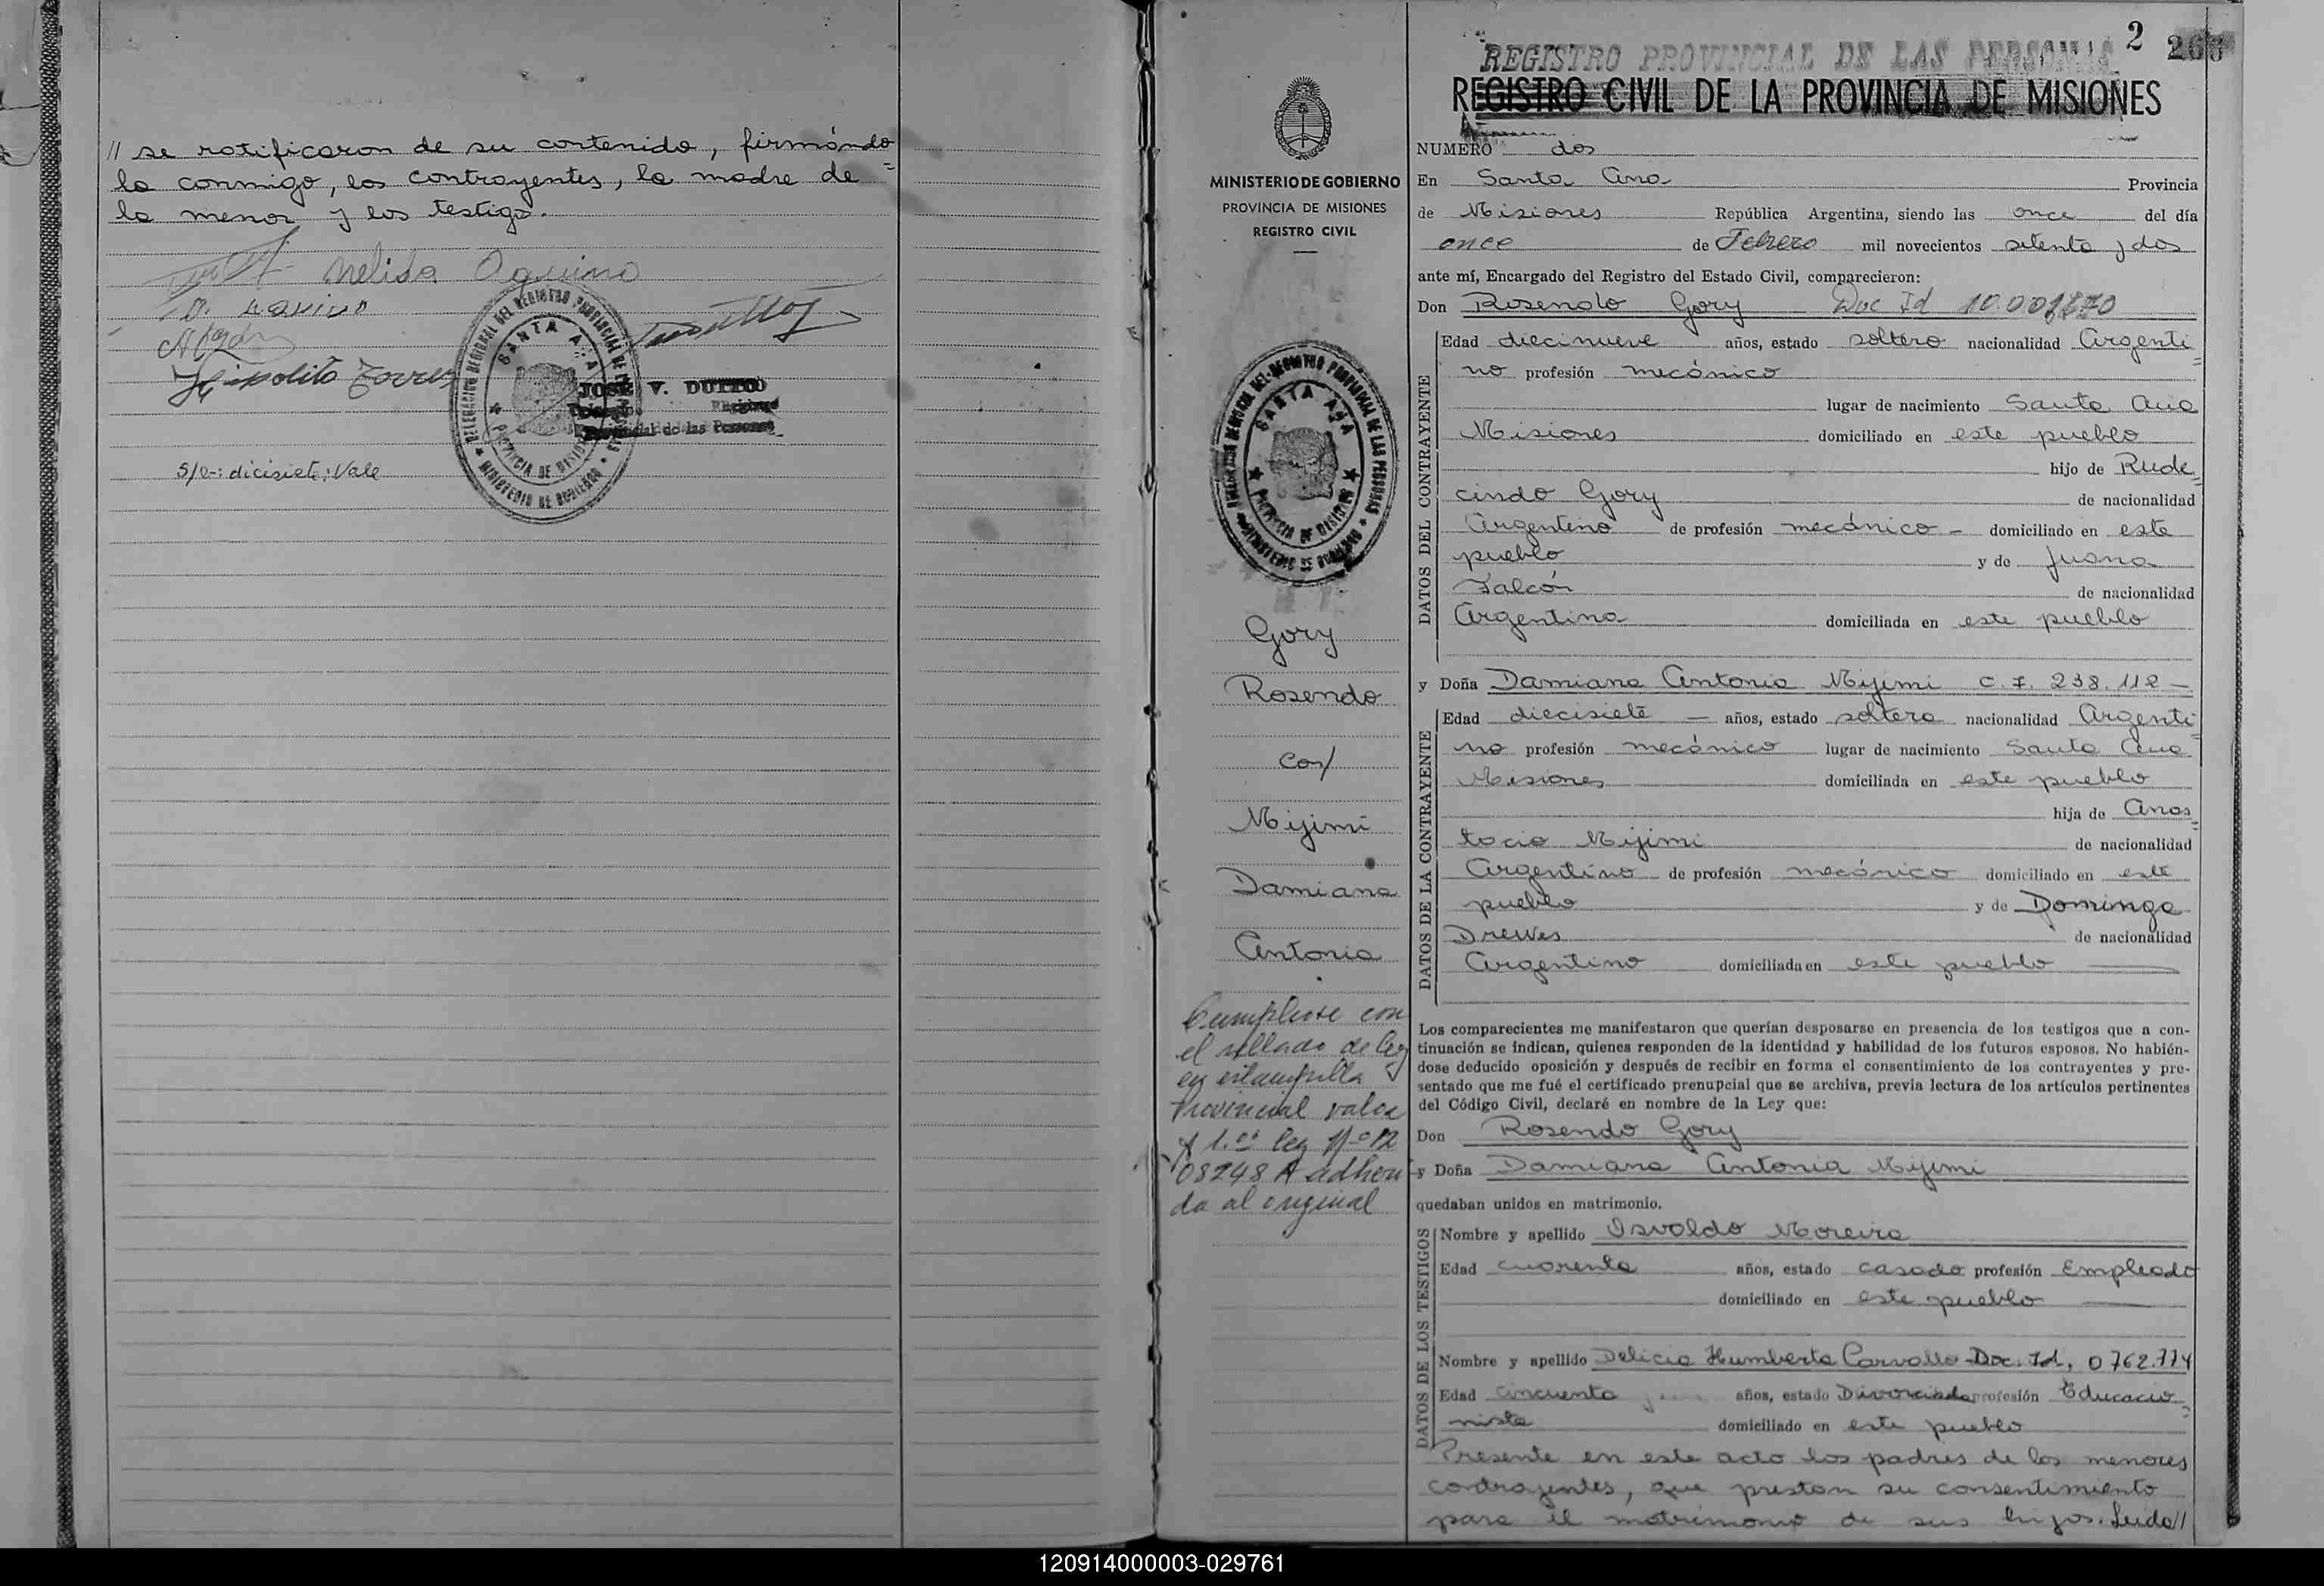 // se ratificaron de su contenido, firmándo=
la conmigo, los contrayentes, la madre de
la menor y los testigo.
Nelida Aquino
Hipolito Torres
JOSE V. DUTTO
Provincial de las Personas
DELEGACION REGIONAL DEL REGISTRO PROVINCIAL DE LAS PERSONAS
SANTA ANA
PROVINCIA DE MISIONES
MINISTERIO DE GOBIERNO
S/e-: dicisiete: Vale
2
REGISTRO PROVINCIAL DE LAS PERSONAS
REGISTRO CIVIL DE LA PROVINCIA DE MISIONES
MINISTERIO DE GOBIERNO
PROVINCIA DE MISIONES
REGISTRO CIVIL
DELEGACION REGIONAL DEL REGISTRO PROVINCIAL DE LAS PERSONAS
SANTA ANA
PROVINCIA DE MISIONES
MINISTERIO DE GOBIERNO
Gory
Rosendo
con/
Mijimi
Damiana
Antonia
Cumpliose con
el sellado de ley
en estampilla
Provincial valor
$ 1.00 ley Nº 12
08248 A adheri
da al original
NUMERO dos
En Santa Ana Provincia
de Misiones República Argentina, siendo las once del día
once de Febrero mil novecientos setenta y dos
ante mí, Encargado del Registro del Estado Civil, comparecieron:
Don Rosendo Gory Doc Id
DATOS DEL CONTRAYENTE
Edad diecinueve años, estado soltero nacionalidad Argenti=
no profesión mecánico
lugar de nacimiento Santa Ana
Misiones domiciliado en este pueblo
hijo de Rude=
cindo Gory de nacionalidad
Argentino de profesión mecánico - domiciliado en este
pueblo y de Juana
Falcón de nacionalidad
Argentina domiciliada en este pueblo
y Doña Damiana Antonia Mijimi C.I. 238.112 -
DATOS DE LA CONTRAYENTE
Edad diecisiete - años, estado soltera nacionalidad Argenti=
na profesión mecánico lugar de nacimiento Santa Ana
Misiones domiciliada en este pueblo
hija de Anas=
tacio Mijimi de nacionalidad
Argentino de profesión mecánico domiciliado en este
pueblo y de Dominga
Drewes de nacionalidad
Argentino domiciliada en este pueblo
Los comparecientes me manifestaron que querían desposarse en presencia de los testigos que a con-
tinuación se indican, quienes responden de la identidad y habilidad de los futuros esposos. No habién-
dose deducido oposición y después de recibir en forma el consentimiento de los contrayentes y pre-
sentado que me fué el certificado prenupcial que se archiva, previa lectura de los artículos pertinentes
del Código Civil, declaré en nombre de la Ley que:
Don Rosendo Gory
y Doña Damiana Antonia Mijimi
quedaban unidos en matrimonio.
DATOS DE LOS TESTIGOS
Nombre y apellido Osvaldo Moreira
Edad cuarenta años, estado casado profesión Empleado
domiciliado en este pueblo
Nombre y apellido Delicia Humberta Carvallo Doc. Id, 0762.774
Edad cincuenta años, estado Divorciada profesión Educacio=
nista domiciliado en este pueblo
Presente en este acto los padres de los menores
contrayentes, que prestan su consentimiento
para el matrimonio de sus hijos. Leida//
120914000003-029761